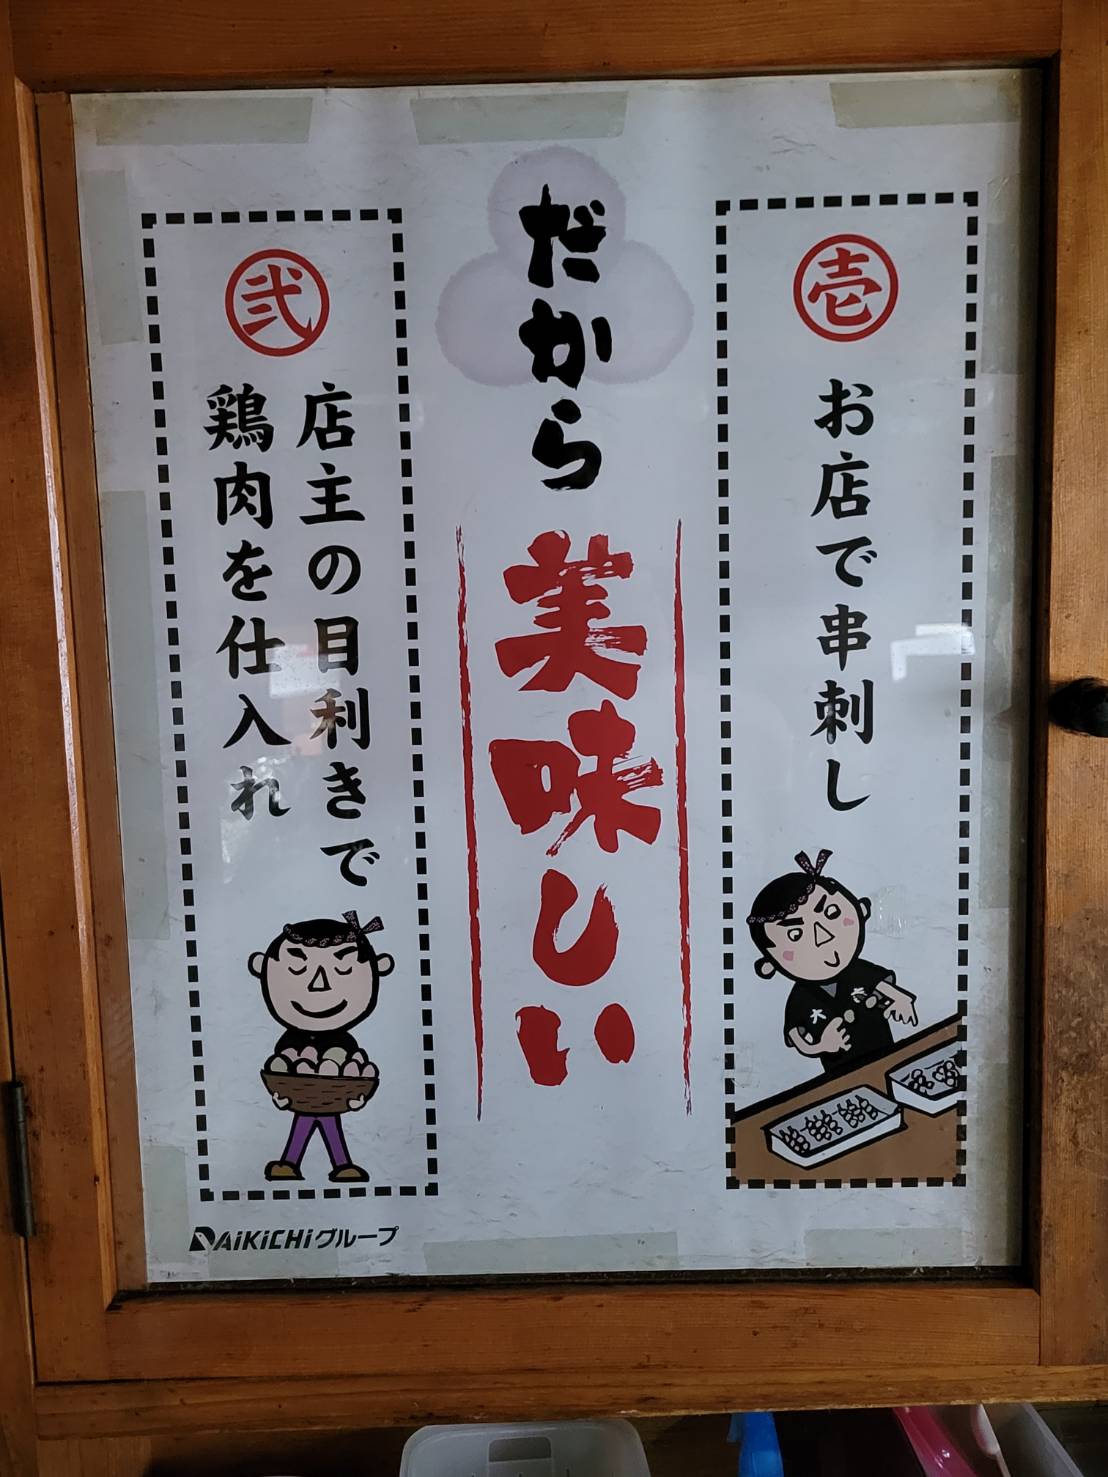 壱
お店で串刺し
だから
美味しい
弐
店主の目利きで
鶏肉を仕入れ
大
吉
DAiKiCHiグループ